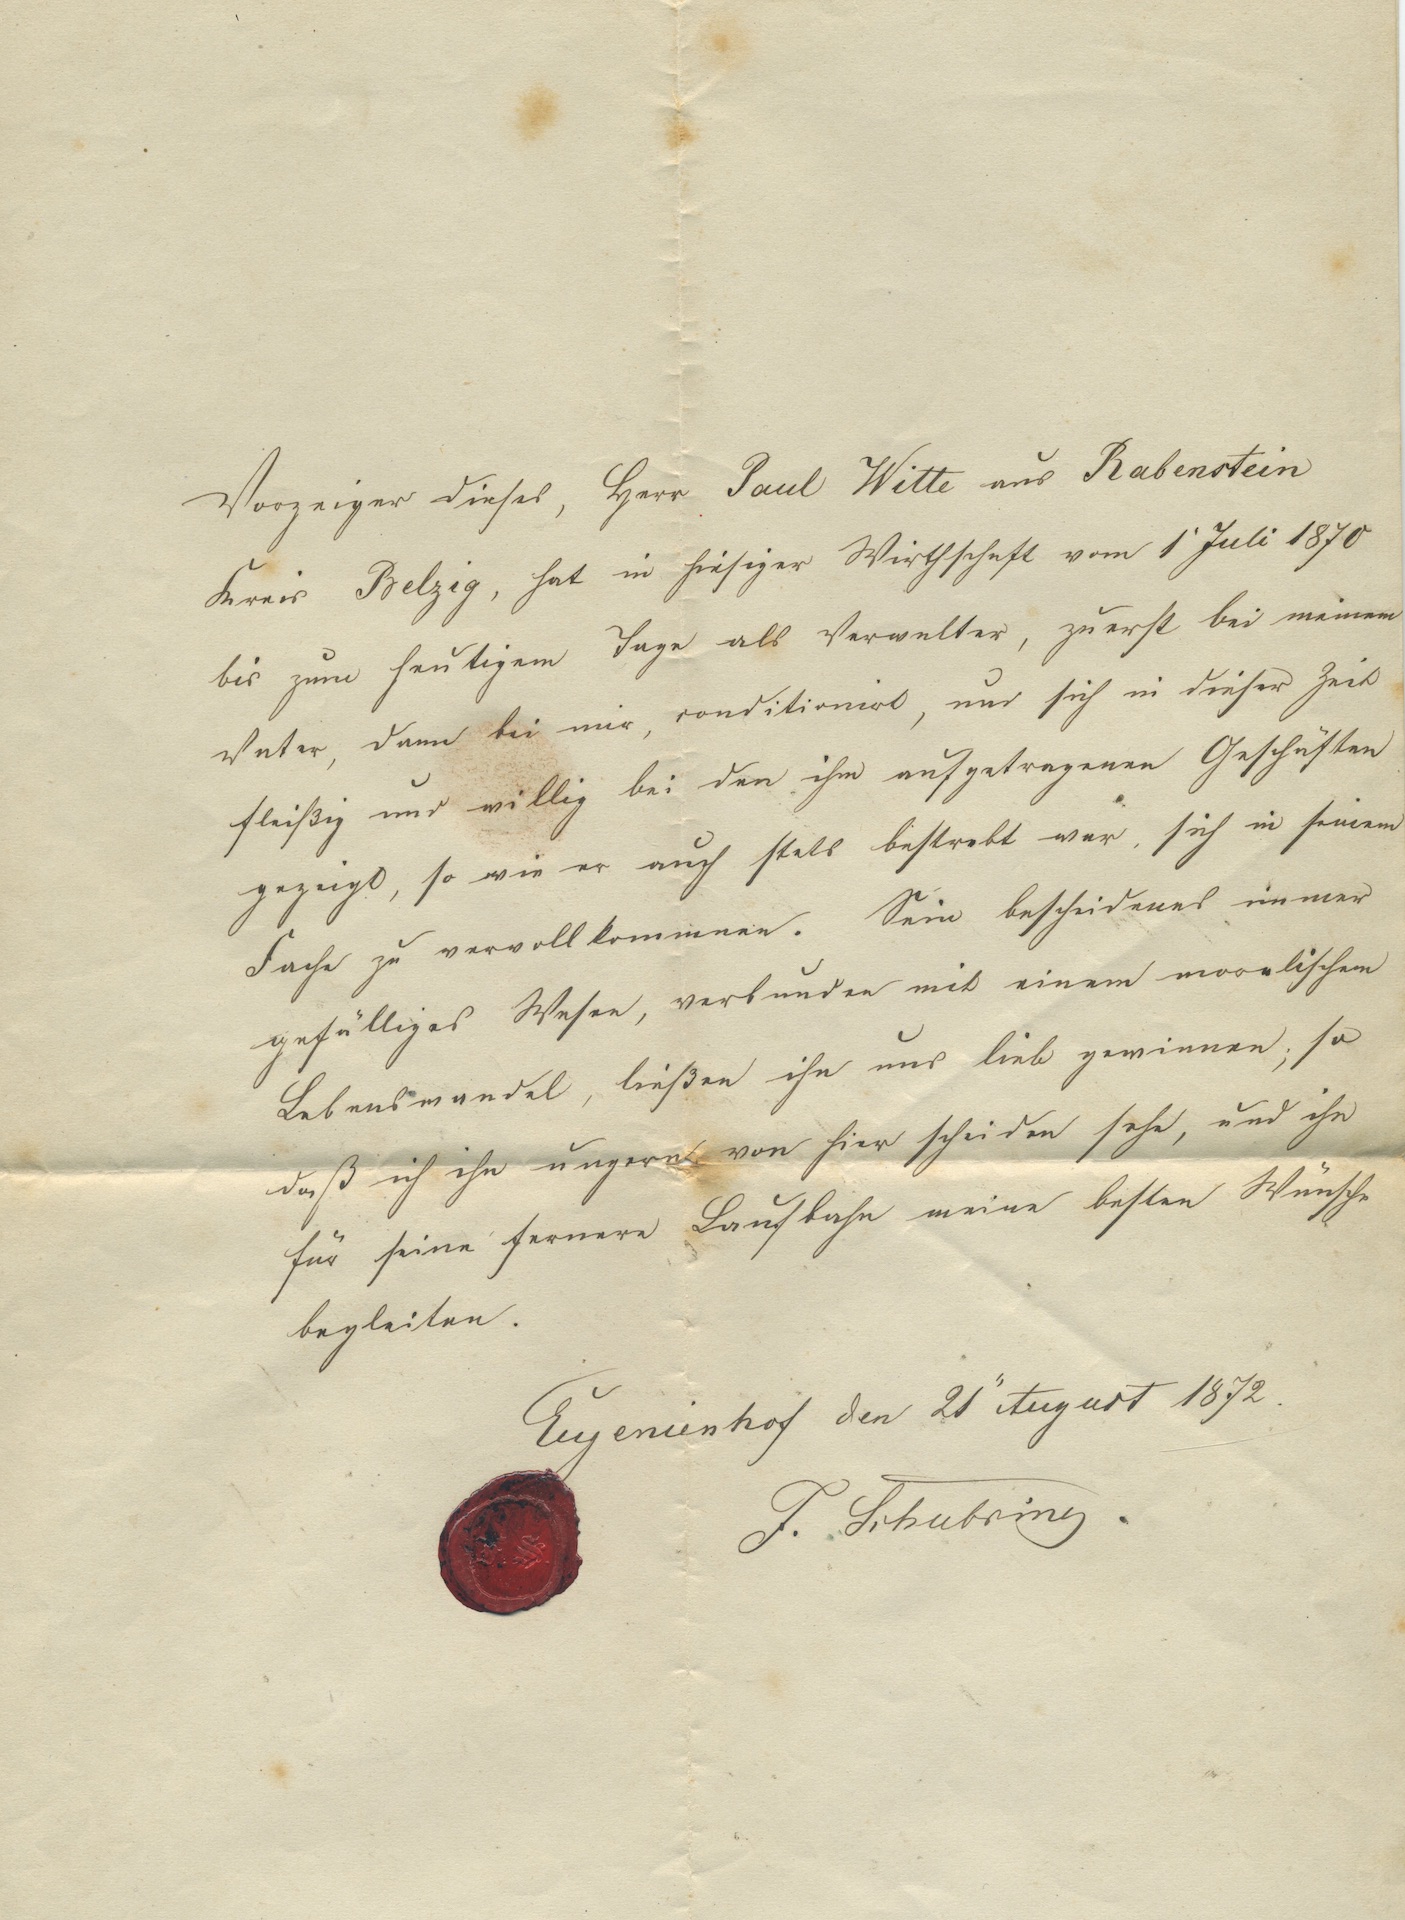 Vorzeiger dieses, Herr Paul Witte aus Rabenstein
Kreis Belzig, hat in hiesiger Wirthschaft vom 1' Juli 1870
bis zum heutigem Tage als Verwalter, zuerst bei meinem
Vater, dann bei mir, conditionirt, und sich in dieser Zeit
fleißig und willig bei den ihm aufgetragenen Geschäften
gezeigt, so wie er auch stets bestrebt war, sich in seinem
Fache zu vervollkommnen. Sein bescheidenes immer
gefälliges Wesen, verbunden mit einem moralischem
Lebenswandel, ließen ihn uns lieb gewinnen; so
daß ich ihn ungern von hier scheiden sehe, und ihn
für seine fernere Laufbahn meine besten Wünsche
begleiten.
Eugenienhof den 21" August 1872.
F. Schubring.